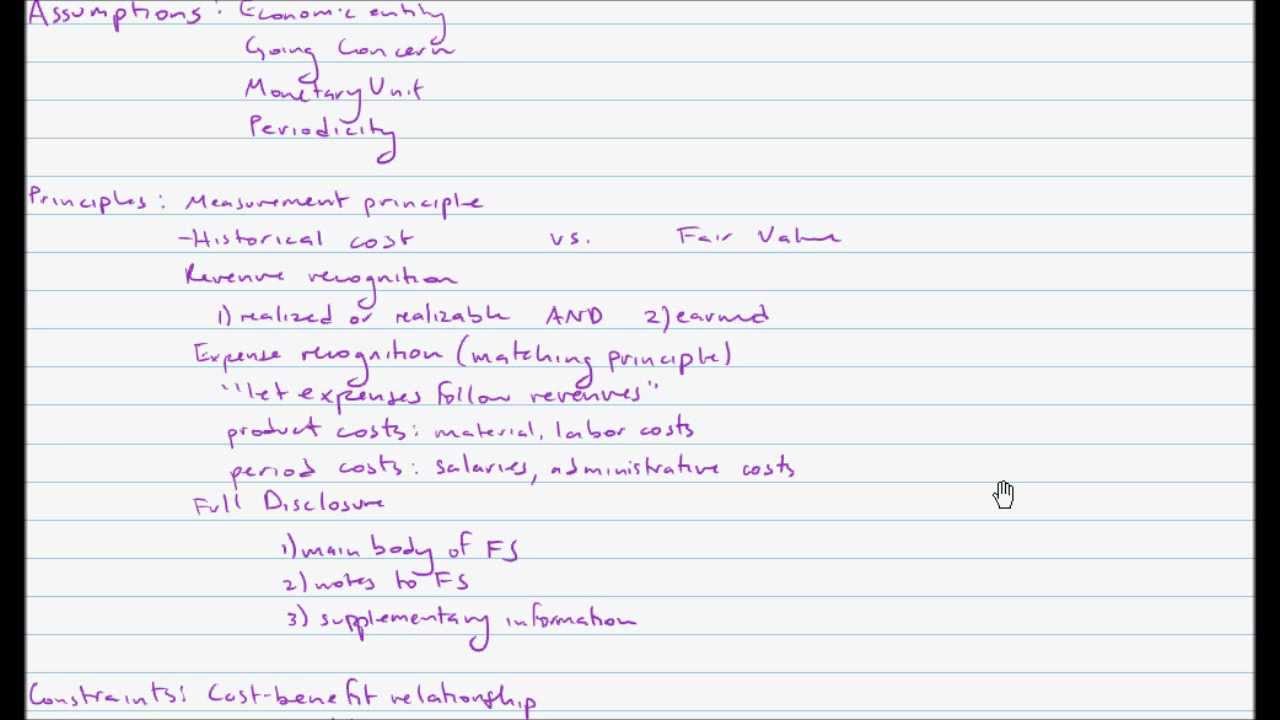 Assumptions: Economic entity
Going Concern
Monetary Unit
Periodicity
Principles: Measurement principle
-Historical cost vs. Fair Value
Revenue recognition
1) realized or realizable AND 2) earned
Expense recognition (matching principle)
"let expenses follow revenues"
product costs: material, labor costs
period costs: salaries, administrative costs
Full Disclosure
1) main body of FS
2) notes to FS
3) supplementary information
Constraints: Cost-benefit relationship